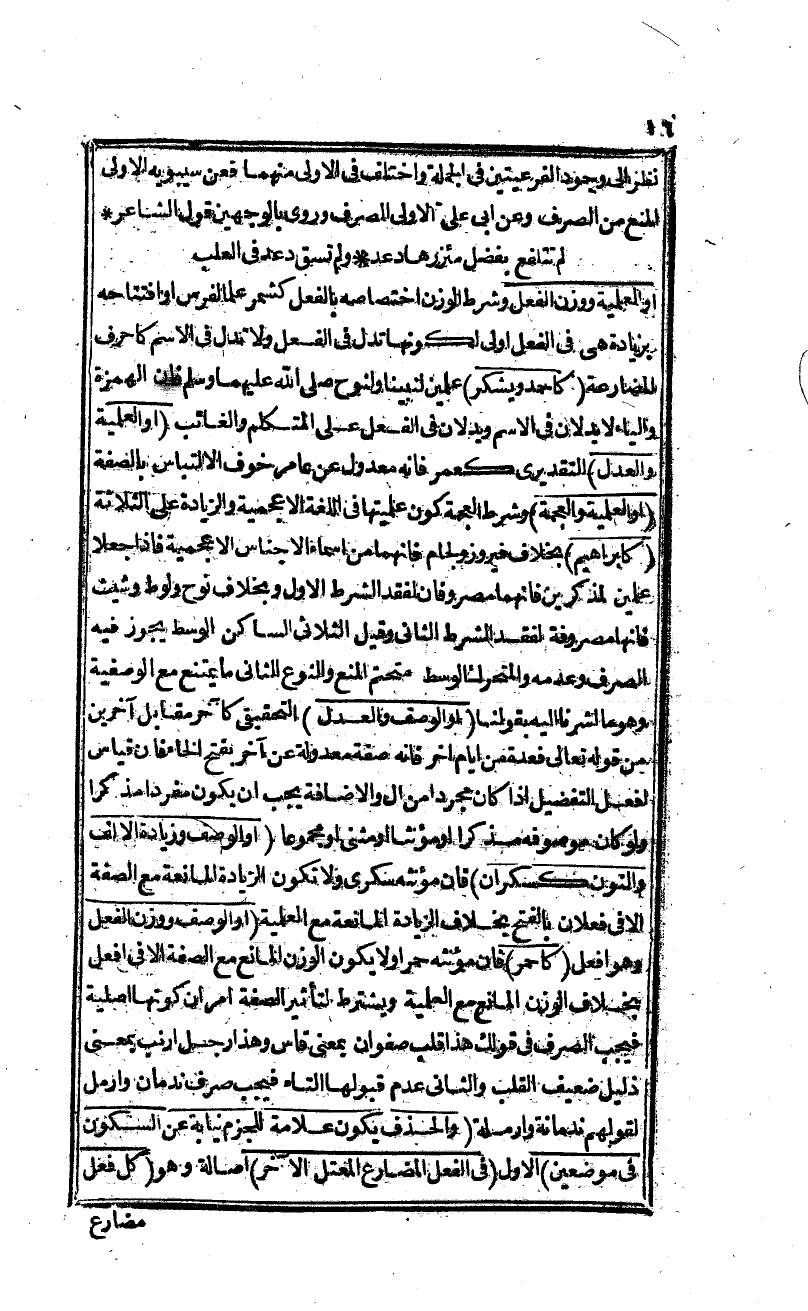 ١٦
نظرا الى وجود الفرعيتين فى الجملة واختلف فى الاولى منهما فعن سيبويه الاولى
المنع من الصرف وعن ابى على الاولى الصرف وروى بالوجهين قول الشاعر *
لم تتلفع بفضل مئزرها دعد * ولم تسق دعد فى العلب
(او العلمية ووزن الفعل) وشرط الوزن اختصاصه بالفعل كشمر علما لفرس او افتتاحه
بزيادة هى فى الفعل اولى لكونها تدل فى الفعل ولا تدل فى الاسم كاحرف
المضارعة (كاحمد ويشكر) علمين لنبينا ولنوح صلى الله عليهما وسلم فان الهمزة
والياء لا يدلان فى الاسم ويدلان فى الفعل على المتكلم والغائب (او العلمية
والعدل) التقديرى كعمر فانه معدول عن عامر خوف الالتباس بالصفة
(او العلمية والعجمة) وشرط العجمة كون علميتها فى اللغة الاعجمية والزيادة على الثلاثة
(كابراهيم) بخلاف فيروز ولجام فانهما من اسماء الاجناس الاعجمية فاذا جعلا
علمين لمذكرين فانهما مصروفان لفقد الشرط الاول وبخلاف نوح ولوط وشيت
فانها مصروفة لفقد الشرط الثانى وقيل الثلاثى الساكن الوسط يجوز فيه
الصرف وعدمه والمتحرك الوسط متحتم المنع والنوع الثانى ما يمتنع مع الوصفية
وهو ما اشرنا اليه بقولنا (او الوصف والعدل) التحقيقى كآخر مقابل آخرين
من قوله تعالى فعدة من ايام اخر فانه صفة معدولة عن آخر بفتح الخاء فان قياس
افعل التفضيل اذا كان مجردا من ال والاضافة يجب ان يكون مفردا مذكرا
ولو كان موصوفه مذكرا او مؤنثا او مثنى او مجموعا (او الوصف وزيادة الالف
والنون كسكران) فان مؤنثه سكرى ولا تكون الزيادة المانعة مع الصفة
الا فى فعلان بالفتح بخلاف الزيادة المانعة مع العلمية (او الوصف ووزن الفعل
وهو افعل (كاحمر) فان مؤنثه حمرا ولا يكون الوزن المانع مع الصفة الا فى افعل
بخلاف الوزن المانع مع العلمية ويشترط لتأثير الصفة امران كونها اصلية
فيجب الصرف فى قولك هذا قلب صفوان بمعنى قاس وهذا رجل ارنب بمعنى
ذليل ضعيف القلب والثانى عدم قبولها التاء فيجب صرف ندمان وارمل
لقولهم ندمانة وارملة (والحذف يكون علامة للجزم نيابة عن السكون
فى موضعين) الاول (فى الفعل المضارع المعتل الآخر) اصالة وهو (كل فعل
مضارع